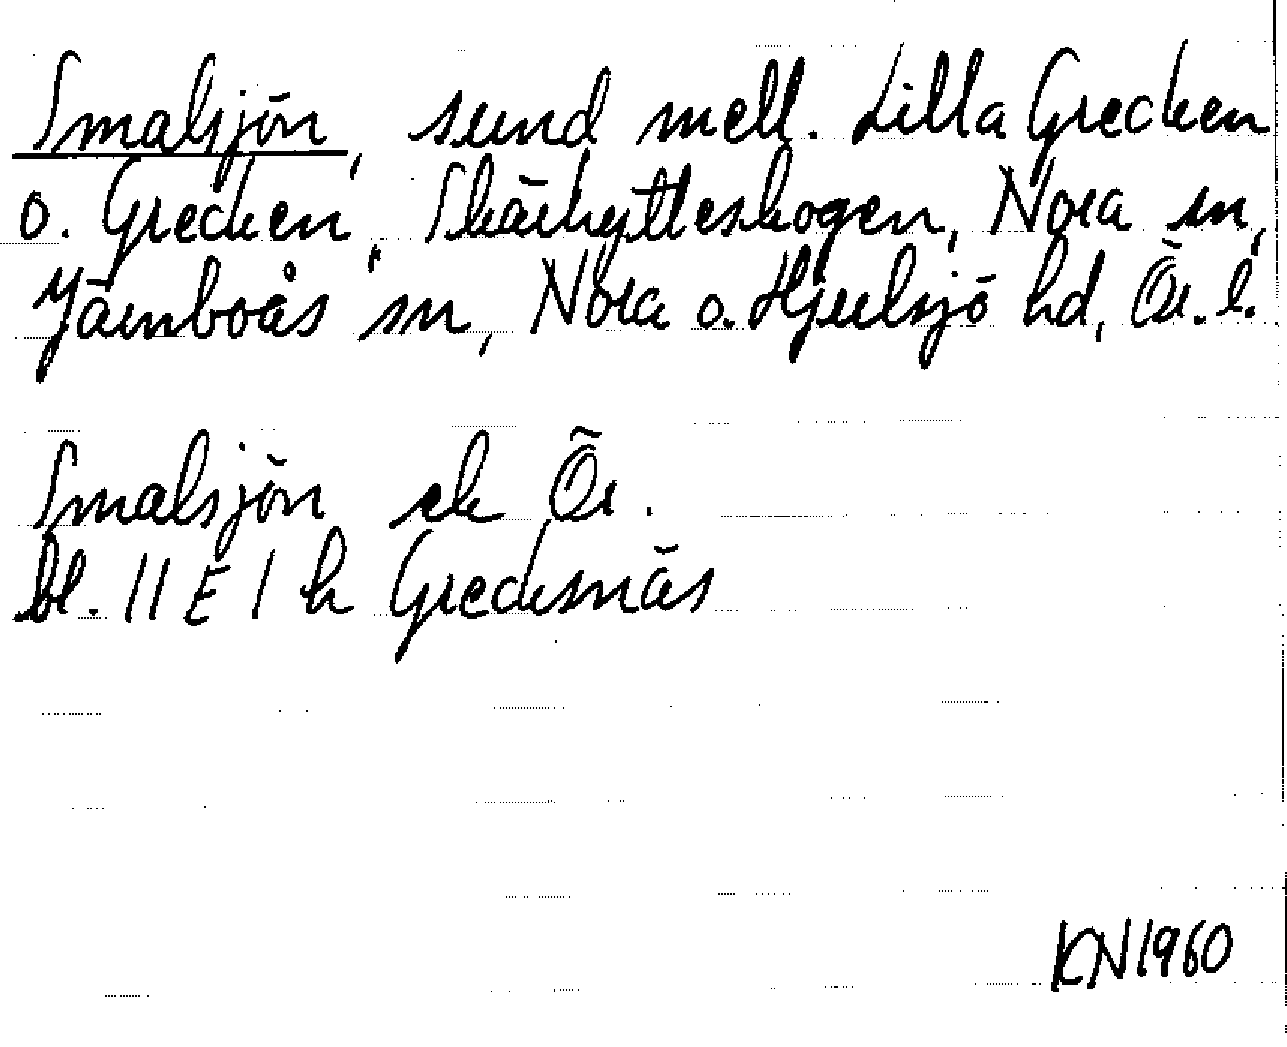 Smalsjön, sund mell. Lilla Grecken
o. Grecken, Skärhytteskogen, Nora sn,
Järnboås sn, Nora o. Hjulsjö hd, Ör. l.
Smalsjön ek Ör.
bl. 11 E 1 h Grecksnäs
KN 1960